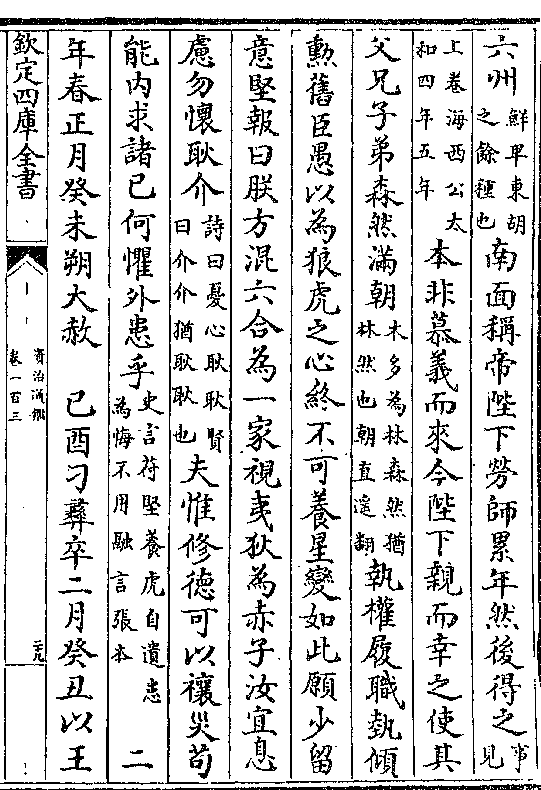 六州鮮卑東胡之餘種也南面稱帝陛下勞師累年然後得之事見
上卷海西公太和四年五年本非慕義而來今陛下親而幸之使其
父兄子弟森然滿朝木多為林森然猶林然也朝直遙翻執權履職勢傾
勲舊臣愚以為狼虎之心終不可養星變如此願少留
意堅報曰朕方混六合為一家視夷狄為赤子汝宜息
慮勿懷耿介詩曰憂心耿耿賢曰介介猶耿耿也夫惟修德可以禳災苟
能内求諸已何懼外患乎史言苻堅養虎自遺患為悔不用融言張本 二
年春正月癸未朔大赦 已酉刁彝卒二月癸丑以王
欽定四庫全書
資治通鑑
卷一百三